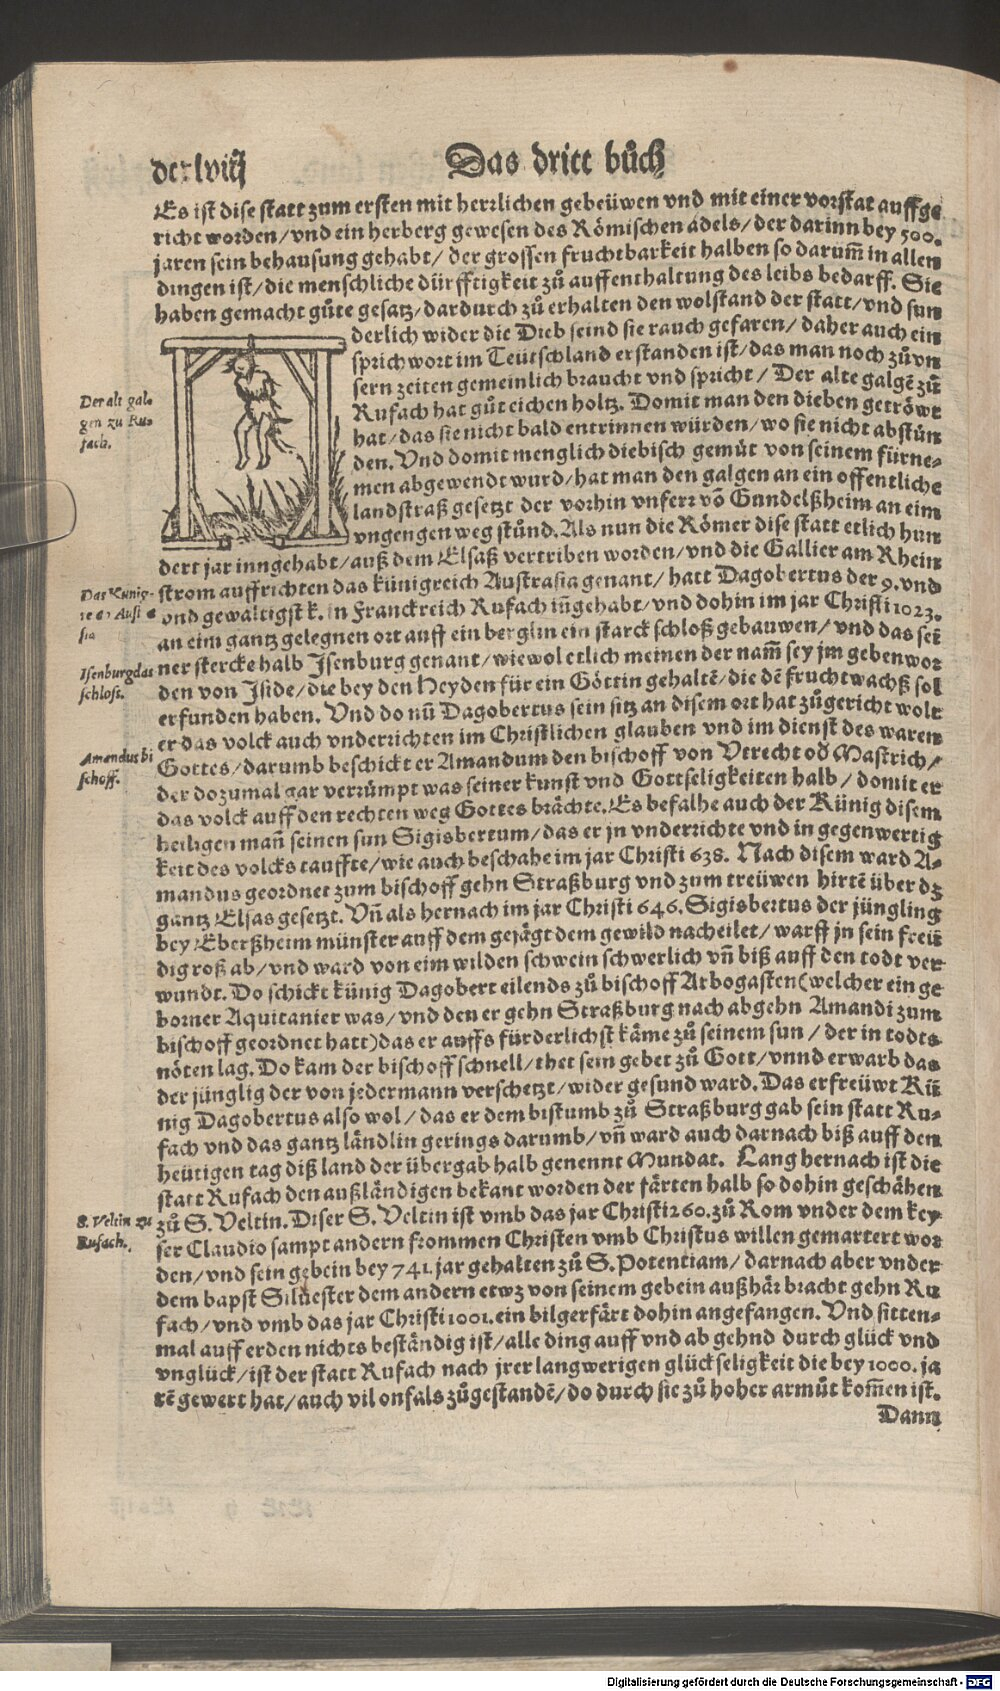 dcxlviij
Das dritt bůch
Es ist dise statt zum ersten mit herrlichen gebeüwen vnd mit einer vorstat auffge
richt worden/vnd ein herberg gewesen des Römischen adels/der darinn bey 500.
jaren sein behausung gehabt/ der grossen fruchtbarkeit halben so darum̃ in allen
dingen ist/die menschliche dürfftigkeit zů auffenthaltung des leibs bedarff. Sie
haben gemacht gůte gesatz/dardurch zů erhalten den wolstand der statt/vnd sun
derlich wider die Dieb seind sie rauch gefaren/ daher auch ein
sprichwort im Teütschland erstanden ist/das man noch zů vn
sern zeiten gemeinlich braucht vnd spricht/ Der alte galgẽ zů
Rufach hat gůt eichen holtz. Domit man den dieben getröwt
hat/das sie nicht bald entrinnen würden/wo sie nicht abstün
den. Vnd domit menglich diebisch gemüt von seinem fürne-
men abgewendt wurd/hat man den galgen an ein offentliche
landstraß gesetzt der vorhin vnferr võ Gundelßheim an eim
vngengen weg stůnd. Als nun die Römer dise statt etlich hun
dert jar inngehabt/auß dem Elsaß vertriben worden/vnd die Gallier am Rhein
strom auffrichten das künigreich Austrasia genant/ hatt Dagobertus der 9. vnd
vnd gewaltigst k. in Franckreich Rufach iñgehabt/vnd dohin im jar Christi 1023.
an eim gantz gelegnen ort auff ein berglin ein starck schloß gebauwen/ vnd das sei
ner stercke halb Isenburg genant/wiewol etlich meinen der nam̃ sey jm geben wor
den von Iside/die bey den Heyden für ein Göttin gehaltẽ/die dẽ fruchtwachß sol
erfunden haben. Vnd do nũ Dagobertus sein sitz an disem ort hat zůgericht wolt
er das volck auch vnderrichten im Christlichen glauben vnd im dienst des waren
Gottes/darumb beschickt er Amandum den bischoff von Vtrecht od Mastrich/
der dozumal gar verrümpt was seiner kunst vnd Gottseligkeiten halb/ domit er
das volck auff den rechten weg Gottes brächte. Es befalhe auch der Künig disem
heiligen mañ seinen sun Sigisbertum/das er jn vnderrichte vnd in gegenwertig
keit des volcks tauffte/wie auch beschahe im jar Christi 638. Nach disem ward A-
mandus geordnet zum bischoff gehn Straßburg vnd zum treüwen hirtẽ über dz
gantz Elsas gesetzt. Vñ als hernach im jar Christi 646. Sigisbertus der jüngling
bey Eberßheim münster auff dem gejägt dem gewild nacheilet/ warff jn sein freü
dig roß ab/vnd ward von eim wilden schwein schwerlich vñ biß auff den todt ver
wundt. Do schickt künig Dagobert eilends zů bischoff Arbogasten(welcher ein ge
borner Aquitanier was/vnd den er gehn Straßburg nach abgehn Amandi zum
bischoff geordnet hatt)das er auffs fürderlichst käme zů seinem sun/ der in todts
nöten lag. Do kam der bischoff schnell/thet sein gebet zů Gott/vnnd erwarb das
der jünglig der von jedermann verschetzt/wider gesund ward. Das erfreüwt Kü
nig Dagobertus also wol/das er dem bistumb zů Straßburg gab sein statt Ru-
fach vnd das gantz ländlin gerings darumb/vñ ward auch darnach biß auff den
heütigen tag diß land der übergab halb genennt Mundat. Lang hernach ist die
statt Rufach den außländigen bekant worden der färten halb so dohin geschähen
zů S. Veltin. Diser S. Veltin ist vmb das jar Christi 260. zů Rom vnder dem key
ser Claudio sampt andern frommen Christen vmb Christus willen gemartert wor
den/vnd sein gebein bey 741. jar gehalten zů S. Potentiam/darnach aber vnder
dem bapst Siluester dem andern etwz von seinem gebein außhär bracht gehn Ru
fach/vnd vmb das jar Christi 1001. ein bilgerfärt dohin angefangen. Vnd sitten-
mal auff erden nichts beständig ist/alle ding auff vnd ab gehnd durch glück vnd
vnglück/ist der statt Rufach nach jrer langwerigen glückseligkeit die bey 1000. ja
rẽ gewert hat/auch vil onfals zůgestandẽ/do durch sie zů hoher armůt kom̃en ist.
Dann
Der alt gal-
gen zu Ru-
fach.
Das Künig-
Isenburg das
schloß.
Amandus bi
schoff.
S. Veltin zu
Rufach.
Digitalisierung gefördert durch die Deutsche Forschungsgemeinschaft - DFG